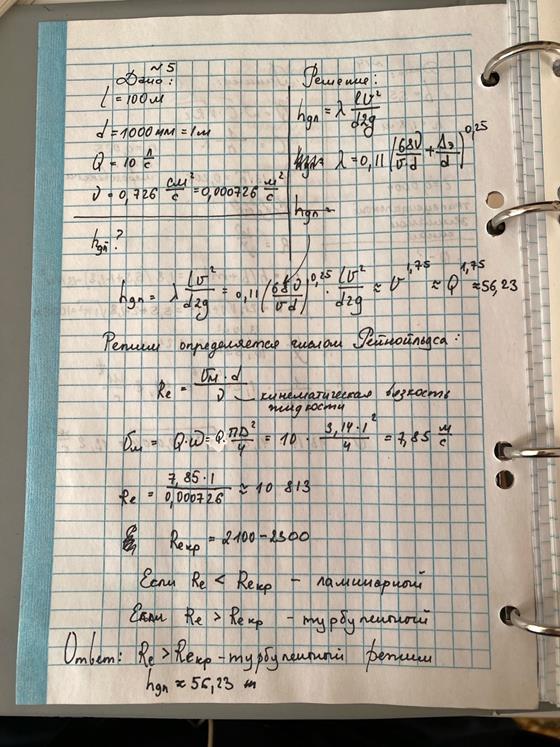 №5
Дано:
l = 100 м
d = 1000 мм = 1м
Q = 10 л/с
ν = 0,726 см²/с = 0,000726 м²/с
hдл?
Решение:
hдл = λ lυ²/d2g
λ = 0,11 (68ν/υd + Δэ/d)^0,25
hдл =
hдл = λ lυ²/d2g = 0,11 (68ν/υd)^0,25 · lυ²/d2g ≈ υ^1,75 ≈ Q^1,75 ≈ 56,23
Режим определяется числом Рейнольдса:
Re = υм · d/ν — кинематическая вязкость
жидкости
υм = Q·ω = Q·ПD²/4 = 10 · 3,14·1²/4 = 7,85 м/с
Re = 7,85·1/0,000726 ≈ 10 813
Reкр = 2100-2300
Если Re < Reкр - ламинарный
Если Re > Reкр - турбулентный
Ответ: Re > Reкр - турбулентный режим
hдл ≈ 56,23 м